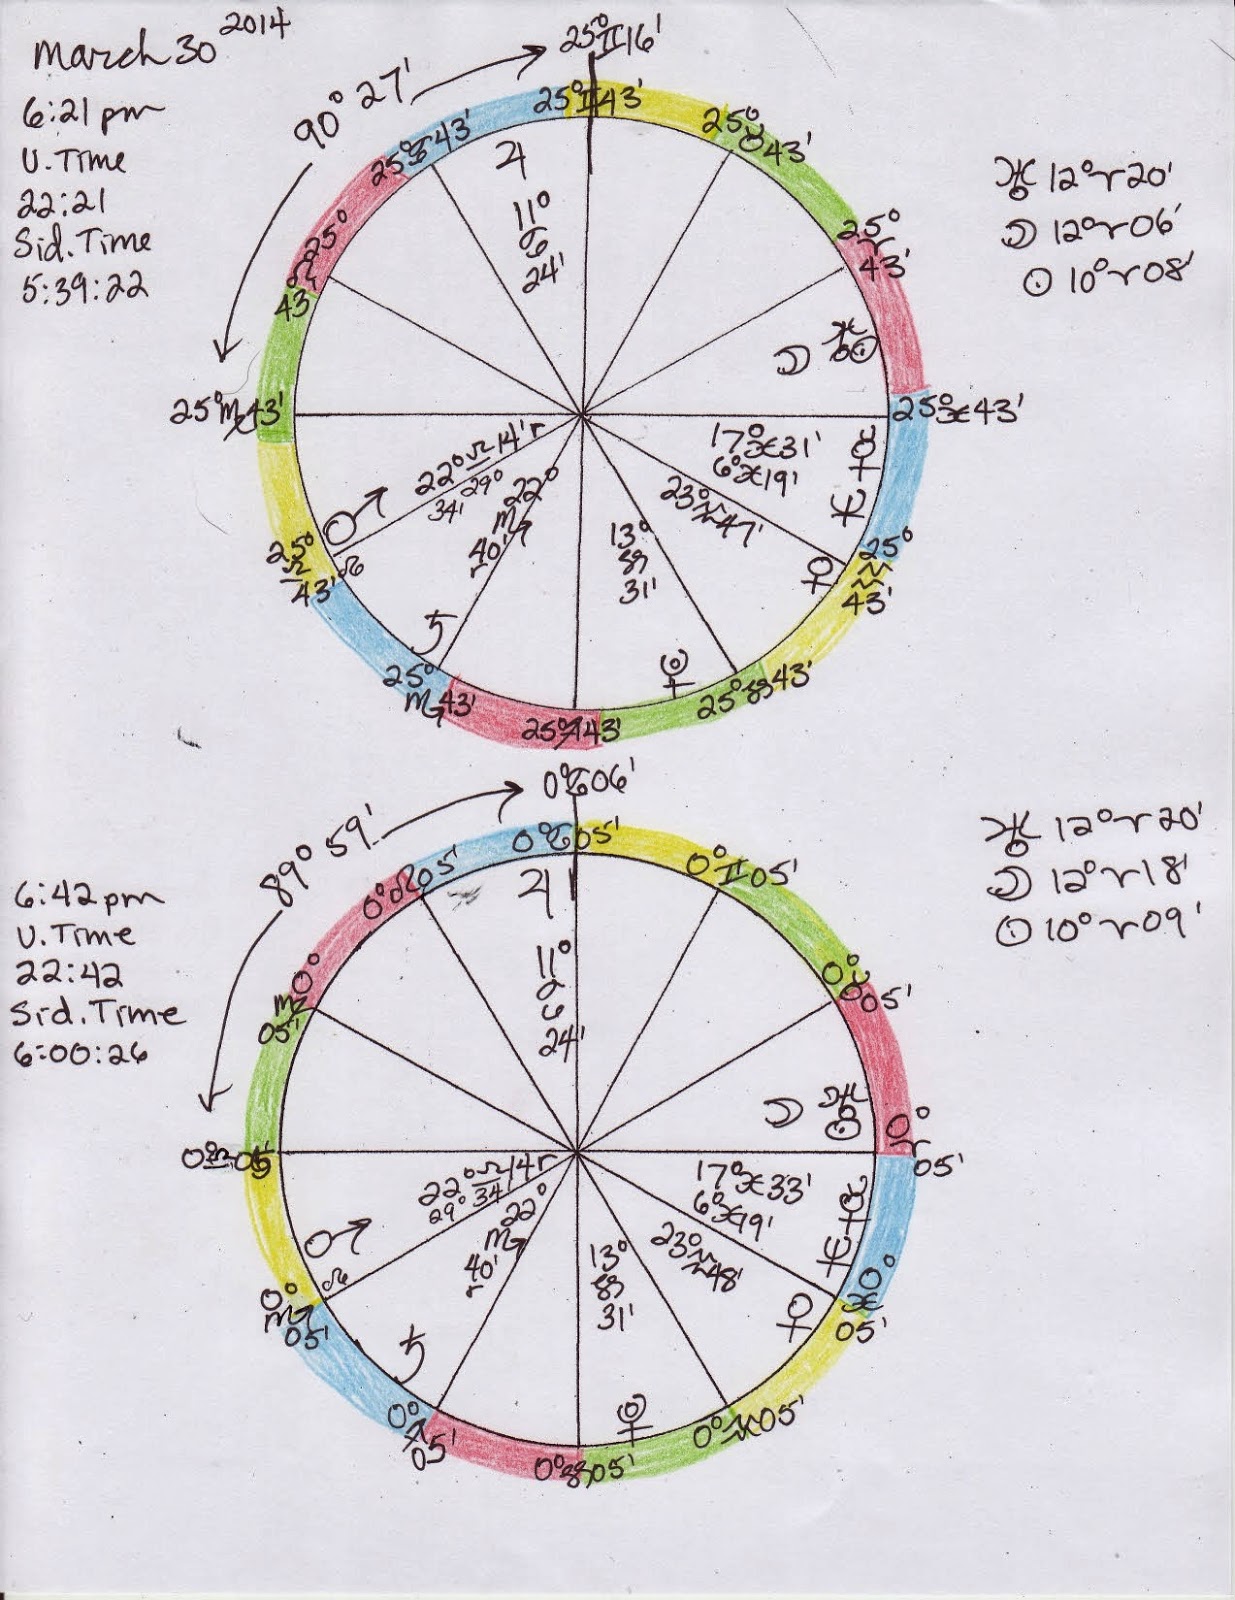 March 30 2014
6:21 pm
U. Time
22:21
Sid. Time
5:39:22
90° 27'
25° ♊ 16'
25° ♊ 43'
25° ♉ 43'
25° ♈ 43'
25° ♓ 43'
25° ♒ 43'
25° ♑ 43'
25° ♐ 43'
25° ♏ 43'
25° ♎ 43'
25° ♍ 43'
25° ♌ 43'
25° ♋ 43'
♃
11°
♋
24'
☽ ♅ ☉
17° ♓ 31' ☿
6° ♓ 19' ♆
23° ♒ 47' ♀
13°
♑
31'
♇
22°
♏
40'
r
♄
♂ 22° ♎ 14' r
29°
34'
☊
♅ 12° ♈ 20'
☽ 12° ♈ 06'
☉ 10° ♈ 08'
6:42 pm
U. Time
22:42
Sid. Time
6:00:26
89° 59'
0° ♋ 06'
0° ♋ 05'
0° ♊ 05'
0° ♉ 05'
0° ♈ 05'
0° ♓ 05'
0° ♒ 05'
0° ♑ 05'
0° ♐ 05'
0° ♏ 05'
0° ♎ 05'
0° ♍ 05'
0° ♌ 05'
♃
11°
♋
24'
☽ ♅ ☉
17° ♓ 33' ☿
6° ♓ 19' ♆
23° ♒ 48' ♀
13°
♑
31'
♇
22°
♏
40'
r
♄
♂ 22° ♎ 14 r
29° 34'
☊
♅ 12° ♈ 20'
☽ 12° ♈ 18'
☉ 10° ♈ 09'